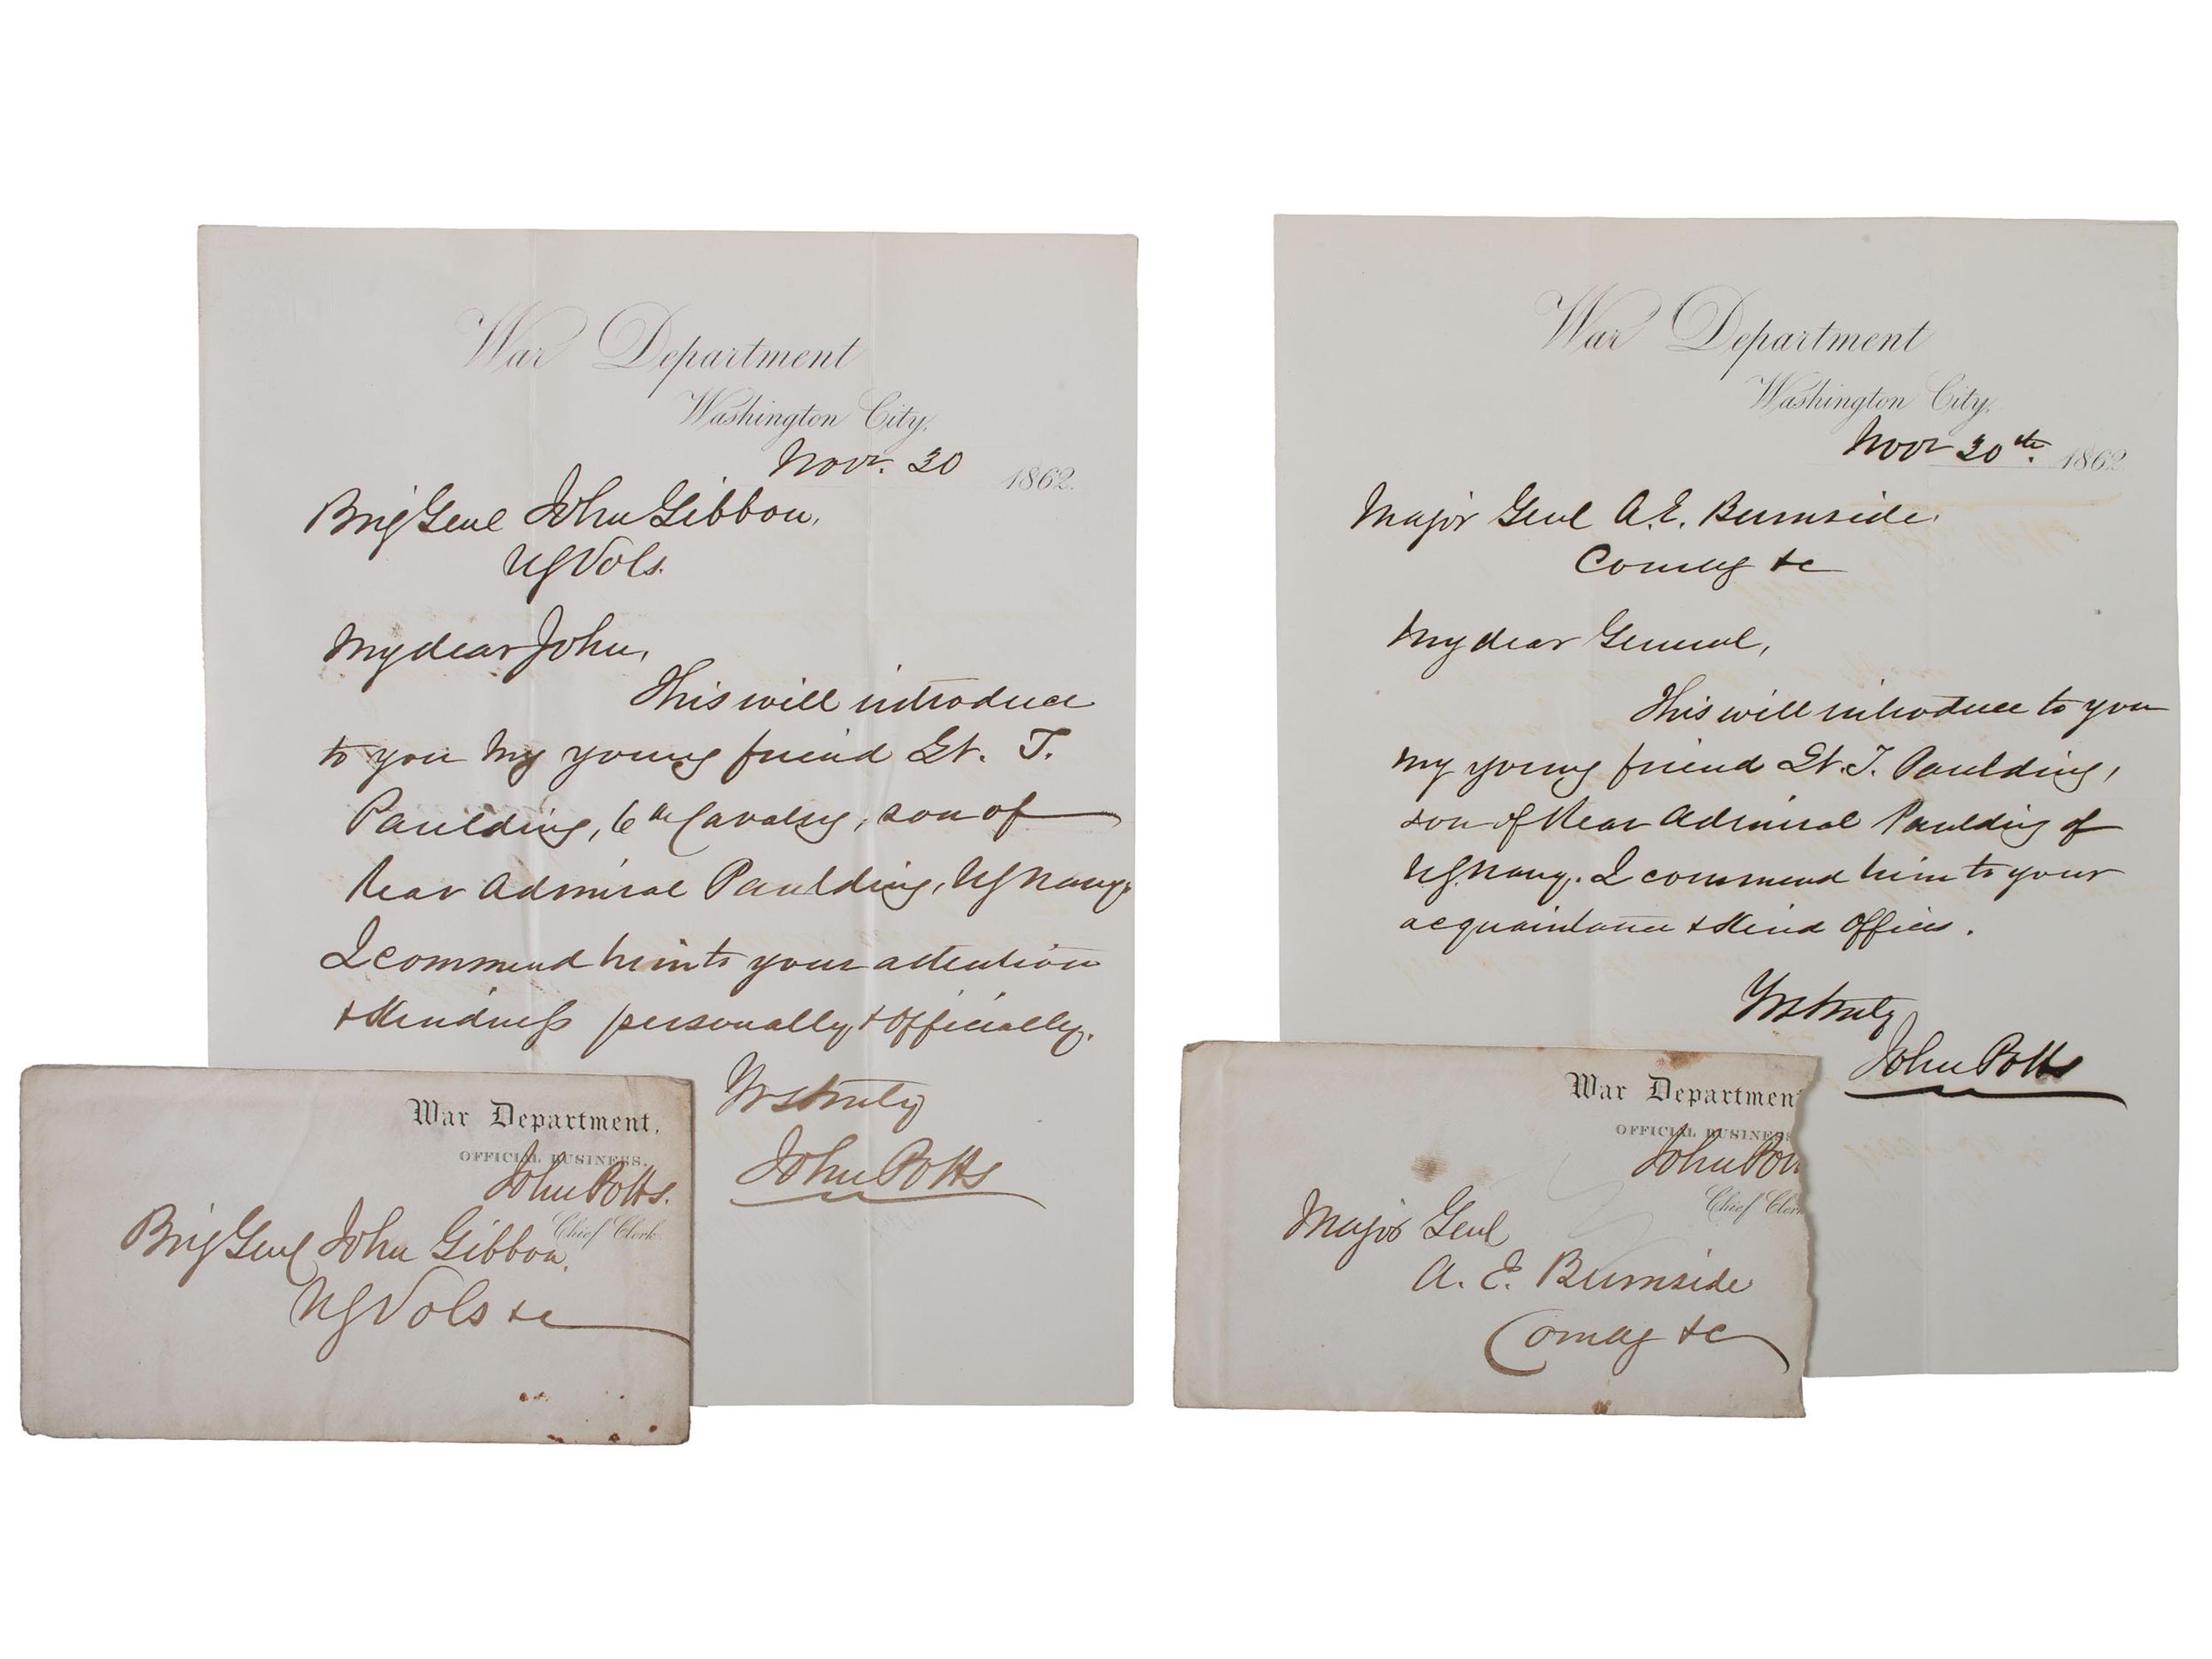 War Department
Washington City,
Novr. 30 1862.
Brig Genl John Gibbon,
US Vols.
My dear John,
This will introduce
to you my young friend Lt. T.
Paulding, 6th Cavalry, son of
Rear Admiral Paulding, US Navy.
I commend him to your attention
& kindness personally & officially.
Yrs truly
John Potts
War Department,
OFFICIAL BUSINESS.
John Potts.
Chief Clerk
Brig Genl John Gibbon,
US Vols &c
War Department
Washington City,
Novr 30th. 1862
Major Genl A. E. Burnside,
Comdg &c
My dear General,
This will introduce to you
my young friend Lt. T. Paulding,
son of Rear Admiral Paulding of
US. Navy. I commend him to your
acquaintance & kind offices.
Yrs truly
John Potts
War Departmen
OFFICIAL BUSINESS
John Pott
Chief Clerk
Major Genl
A. E. Burnside
Comdg &c